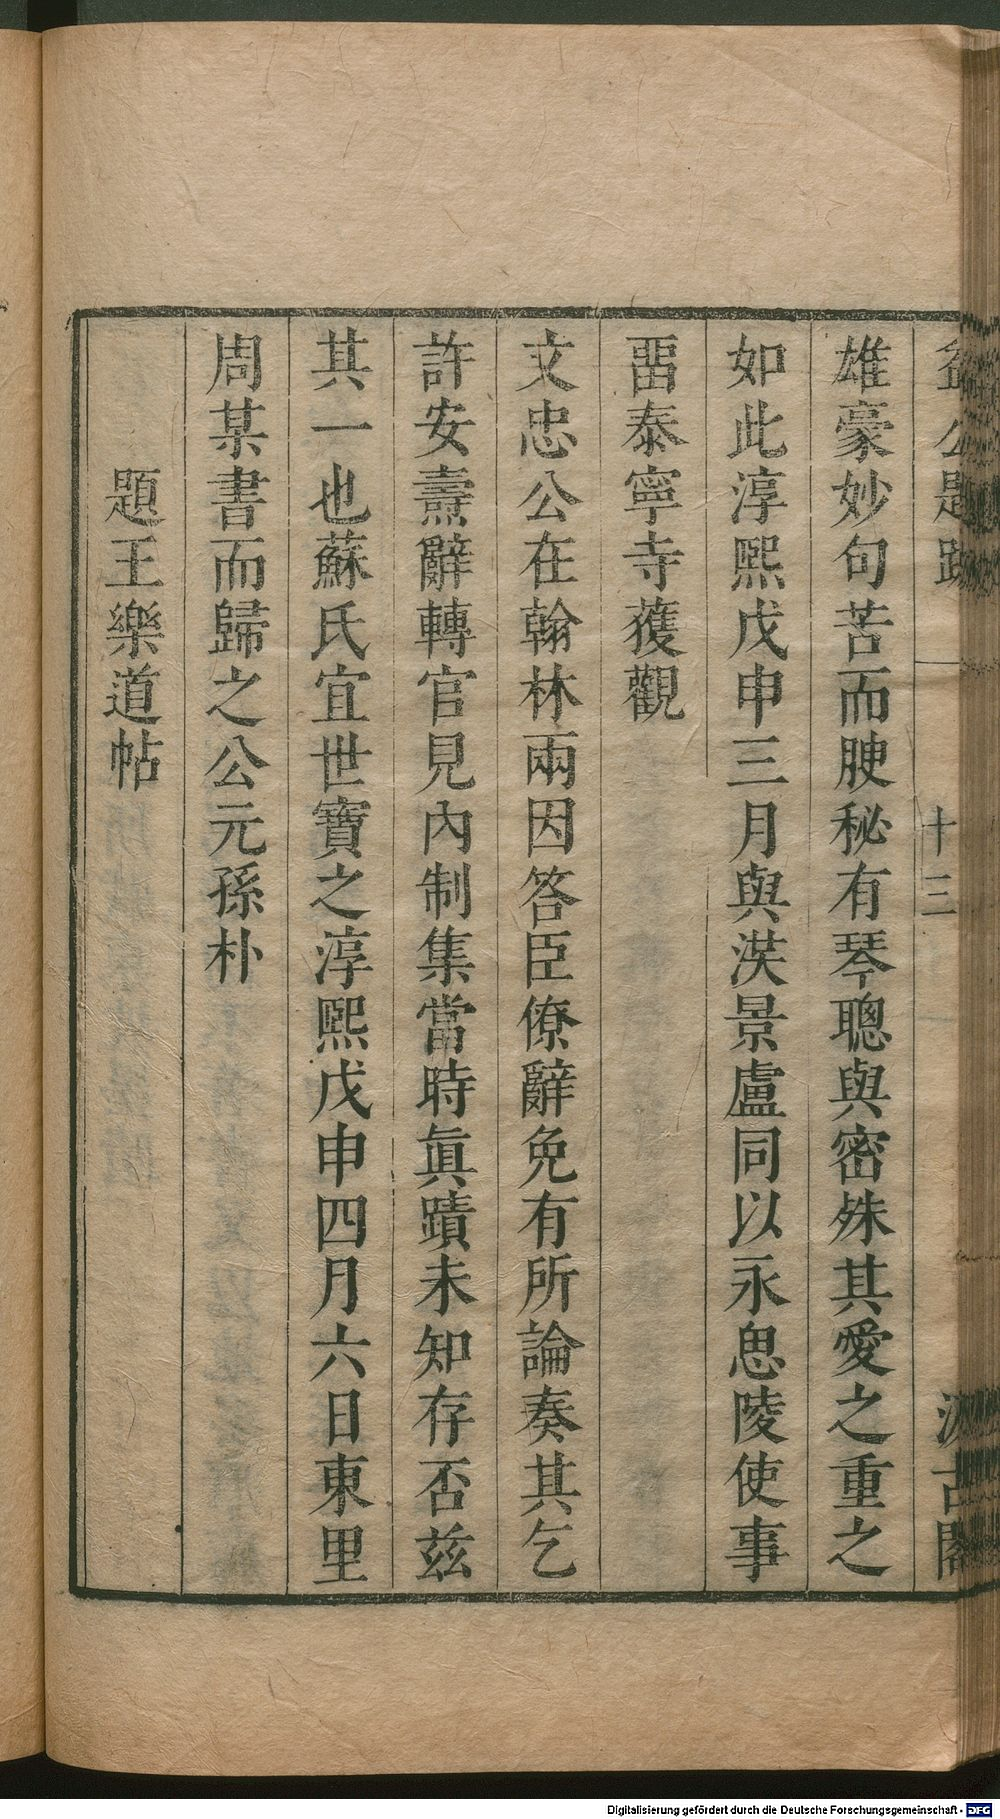 益公題跋 一 十三 汲古閣
雄豪妙句苦而腴秘有琴聰與密殊其愛之重之
如此淳熙戊申三月與洪景盧同以永思陵使事
畱泰寧寺獲觀
文忠公在翰林兩因答臣僚辭免有所論奏其乞
許安燾辭轉官見內制集當時眞蹟未知存否茲
其一也蘇氏宜世寶之淳熙戊申四月六日東里
周某書而歸之公元孫朴
題王樂道帖
Digitalisierung gefördert durch die Deutsche Forschungsgemeinschaft - DFG